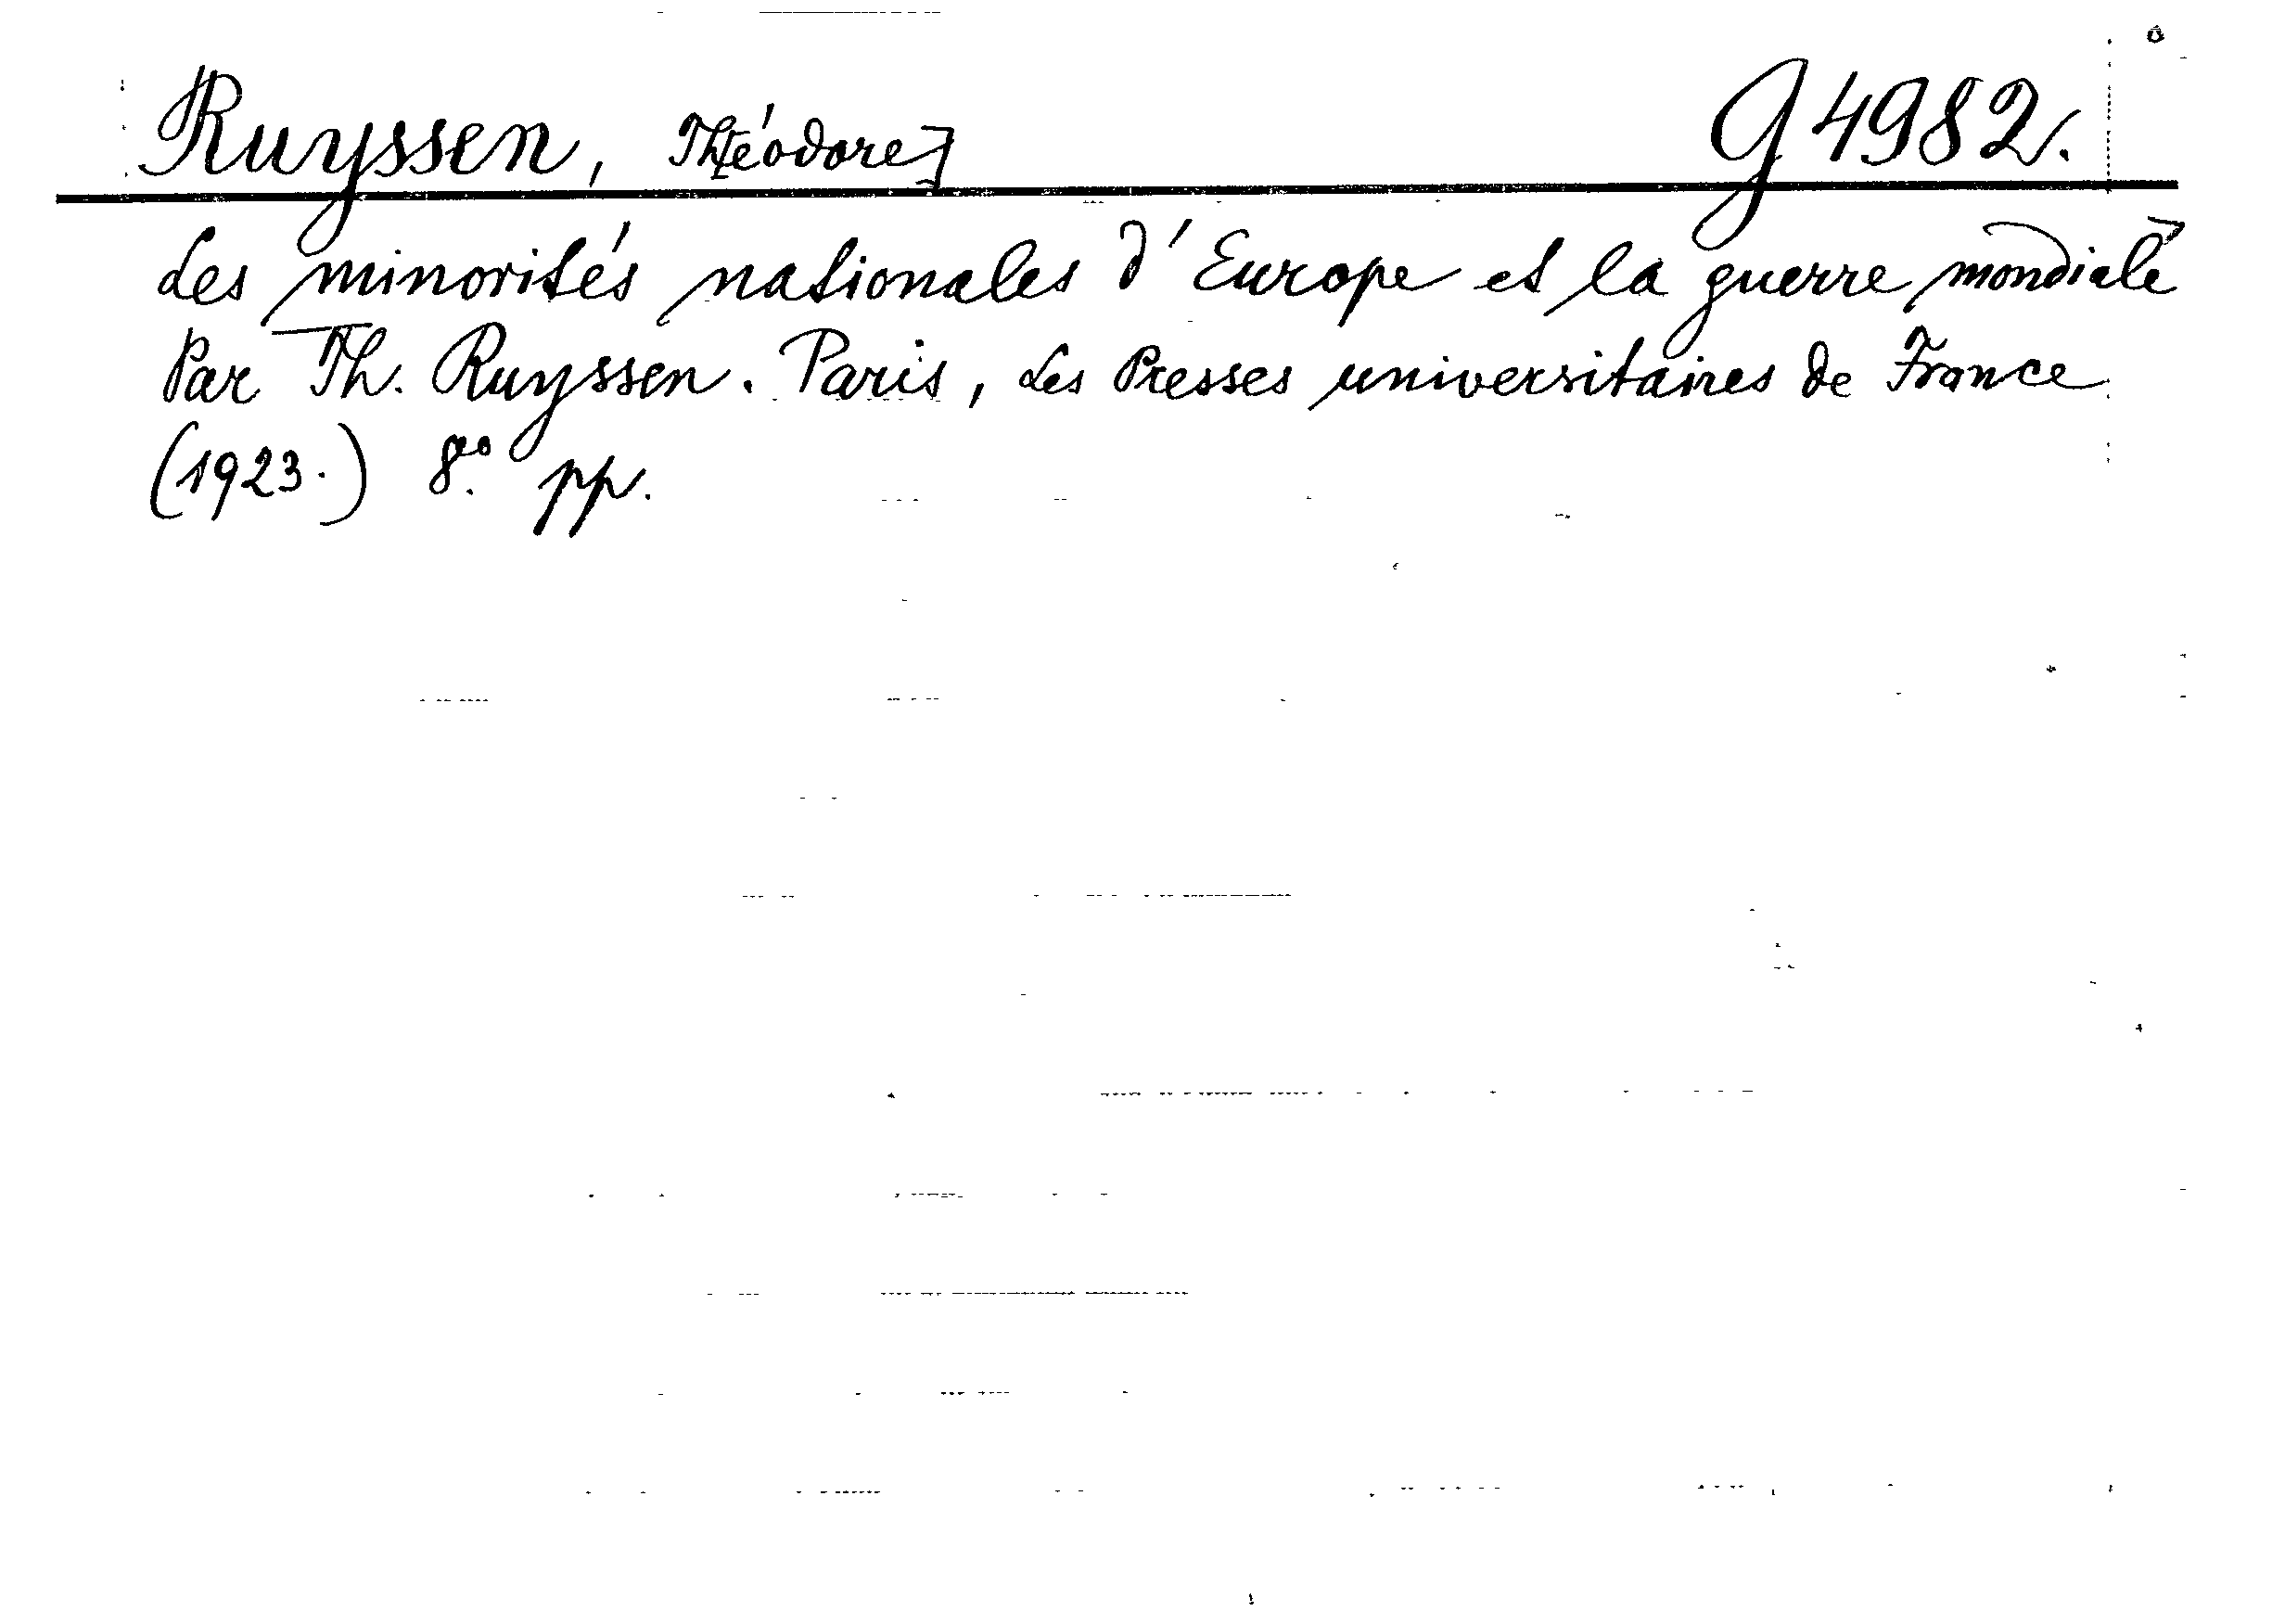 Ruyssen, Th[éodore] G 4982.
Les minorités nationales d'Europe et la guerre mondiale
Par Th. Ruyssen. Paris, Les Presses universitaires de France
(1923.) 8.° pp.